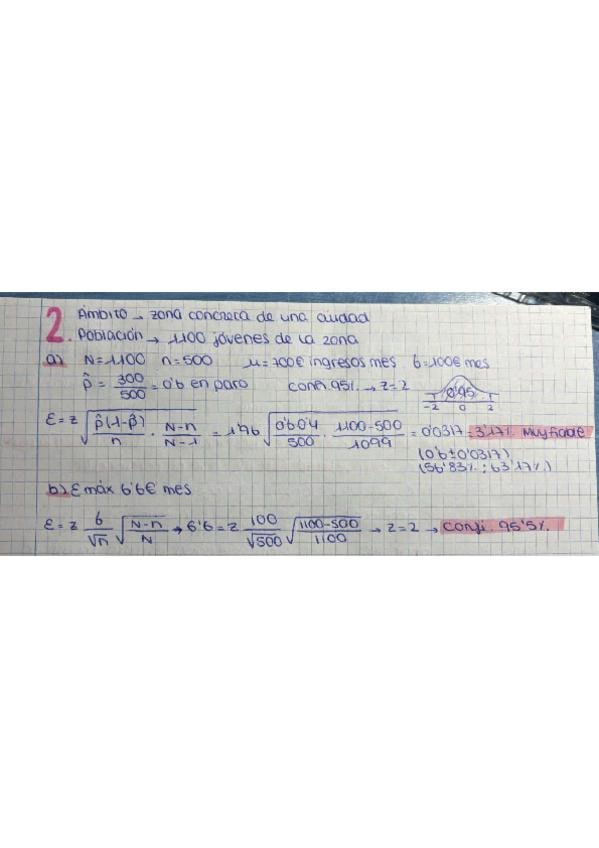 2. Ámbito → zona concreta de una ciudad
Población → 1100 jóvenes de la zona
a) N=1100 n=500 μ=700€ ingresos mes σ=100€ mes
p̂ = 300/500 = 0'6 en paro conf. 95% → z=2 0'95
-2 0 2
ε = z √(p̂(1-p̂)/n · N-n/N-1) = 1'96 √(0'6 0'4/500 · 1100-500/1099) = 0'0317 = 3'17% Muy fiable
(0'6 ± 0'0317)
(56'83% ; 63'17%)
b) ε máx 6'6€ mes
ε = z σ/√n √(N-n/N) → 6'6 = z 100/√500 √(1100-500/1100) → z=2 → Confi. 95'5%